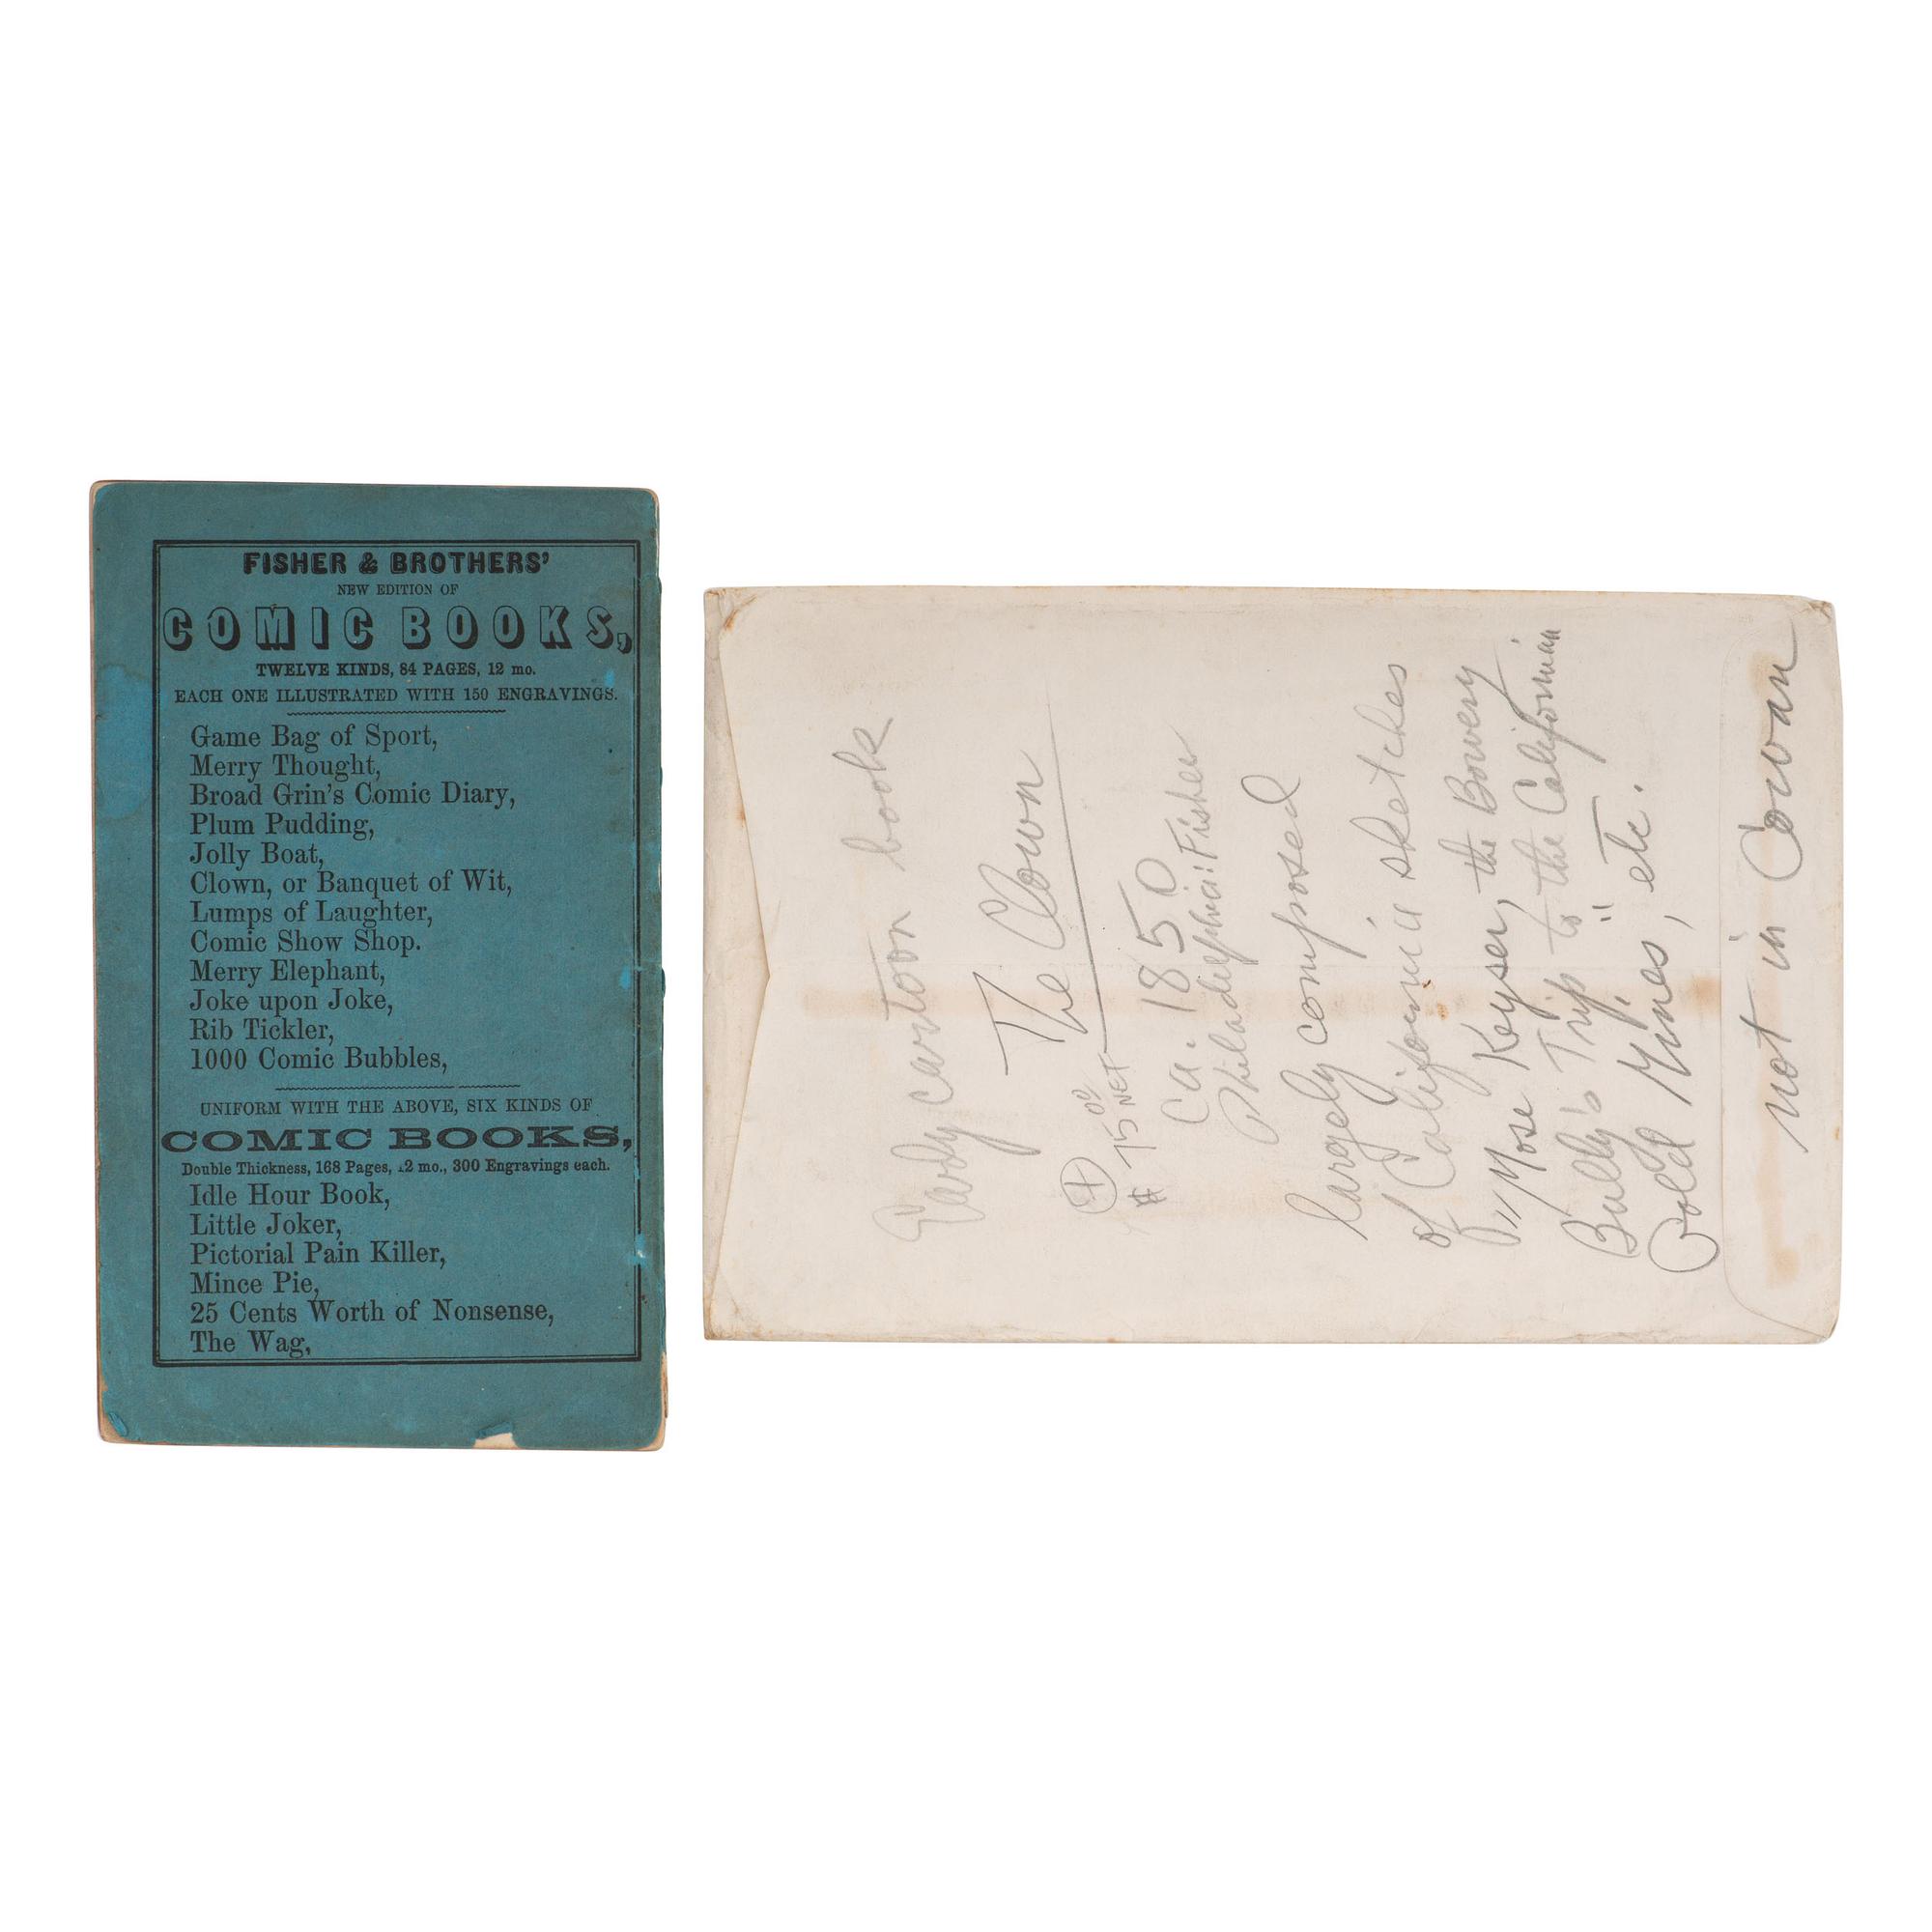 FISHER & BROTHERS'
NEW EDITION OF
COMIC BOOKS,
TWELVE KINDS, 84 PAGES, 12 mo.
EACH ONE ILLUSTRATED WITH 150 ENGRAVINGS.
Game Bag of Sport,
Merry Thought,
Broad Grin's Comic Diary,
Plum Pudding,
Jolly Boat,
Clown, or Banquet of Wit,
Lumps of Laughter,
Comic Show Shop.
Merry Elephant,
Joke upon Joke,
Rib Tickler,
1000 Comic Bubbles,
UNIFORM WITH THE ABOVE, SIX KINDS OF
COMIC BOOKS,
Double Thickness, 168 Pages, 12 mo., 300 Engravings each.
Idle Hour Book,
Little Joker,
Pictorial Pain Killer,
Mince Pie,
25 Cents Worth of Nonsense,
The Wag,
Early cartoon book
The Clown
$75.00 NET
ca. 1850
Philadelphia: Fisher
largely composed
of California sketches
"Mose Keyser, the Bowery
Bully's Trip to the Californian
Gold Mines," etc.
not in Cowan